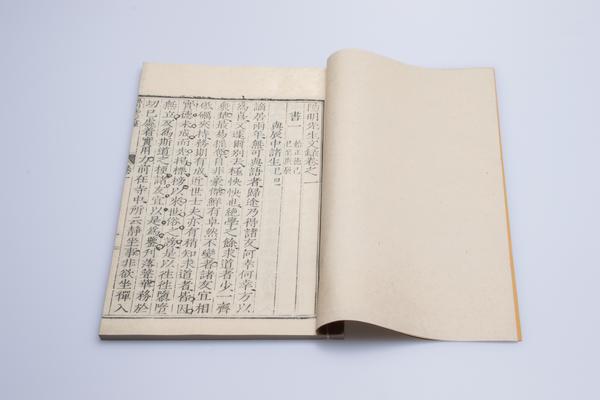 陽明先生文錄卷之一
書一 始正德己巳至庚辰
與辰中諸生 己巳
謫居兩年無可與語者歸途乃得諸友何幸何幸方以
為喜又遽爾別去極怏怏也絕學之餘求道者少一齊
眾楚最易搖奪自非豪傑鮮有卓然不變者諸友宜相
砥礪夾持務期有成近世士夫亦有稍知求道者皆因
實德未成而先揭標榜以來世俗之謗是以往往隳墮
無立反為斯道之梗諸友宜以是為鑒刊落聲華務於
切己處着實用力前在寺中所云靜坐事非欲坐禪入